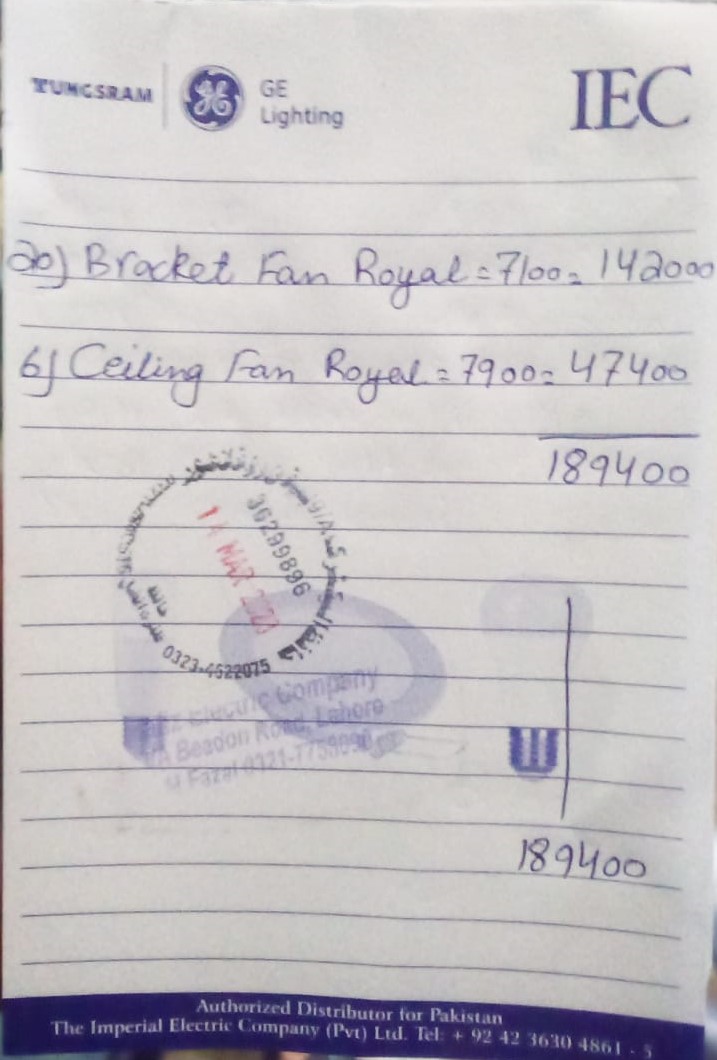 TUNGSRAM
GE
Lighting
IEC
20) Bracket Fan Royal = 7100 = 142000
6) Ceiling Fan Royal = 7900 = 47400
189400
36299896
14 MAR
0323-4522075
Electric Company
Beadon Road, Lahore
Fazal 0321-
189400
Authorized Distributor for Pakistan
The Imperial Electric Company (Pvt) Ltd. Tel: + 92 42 3630 4861 - 5